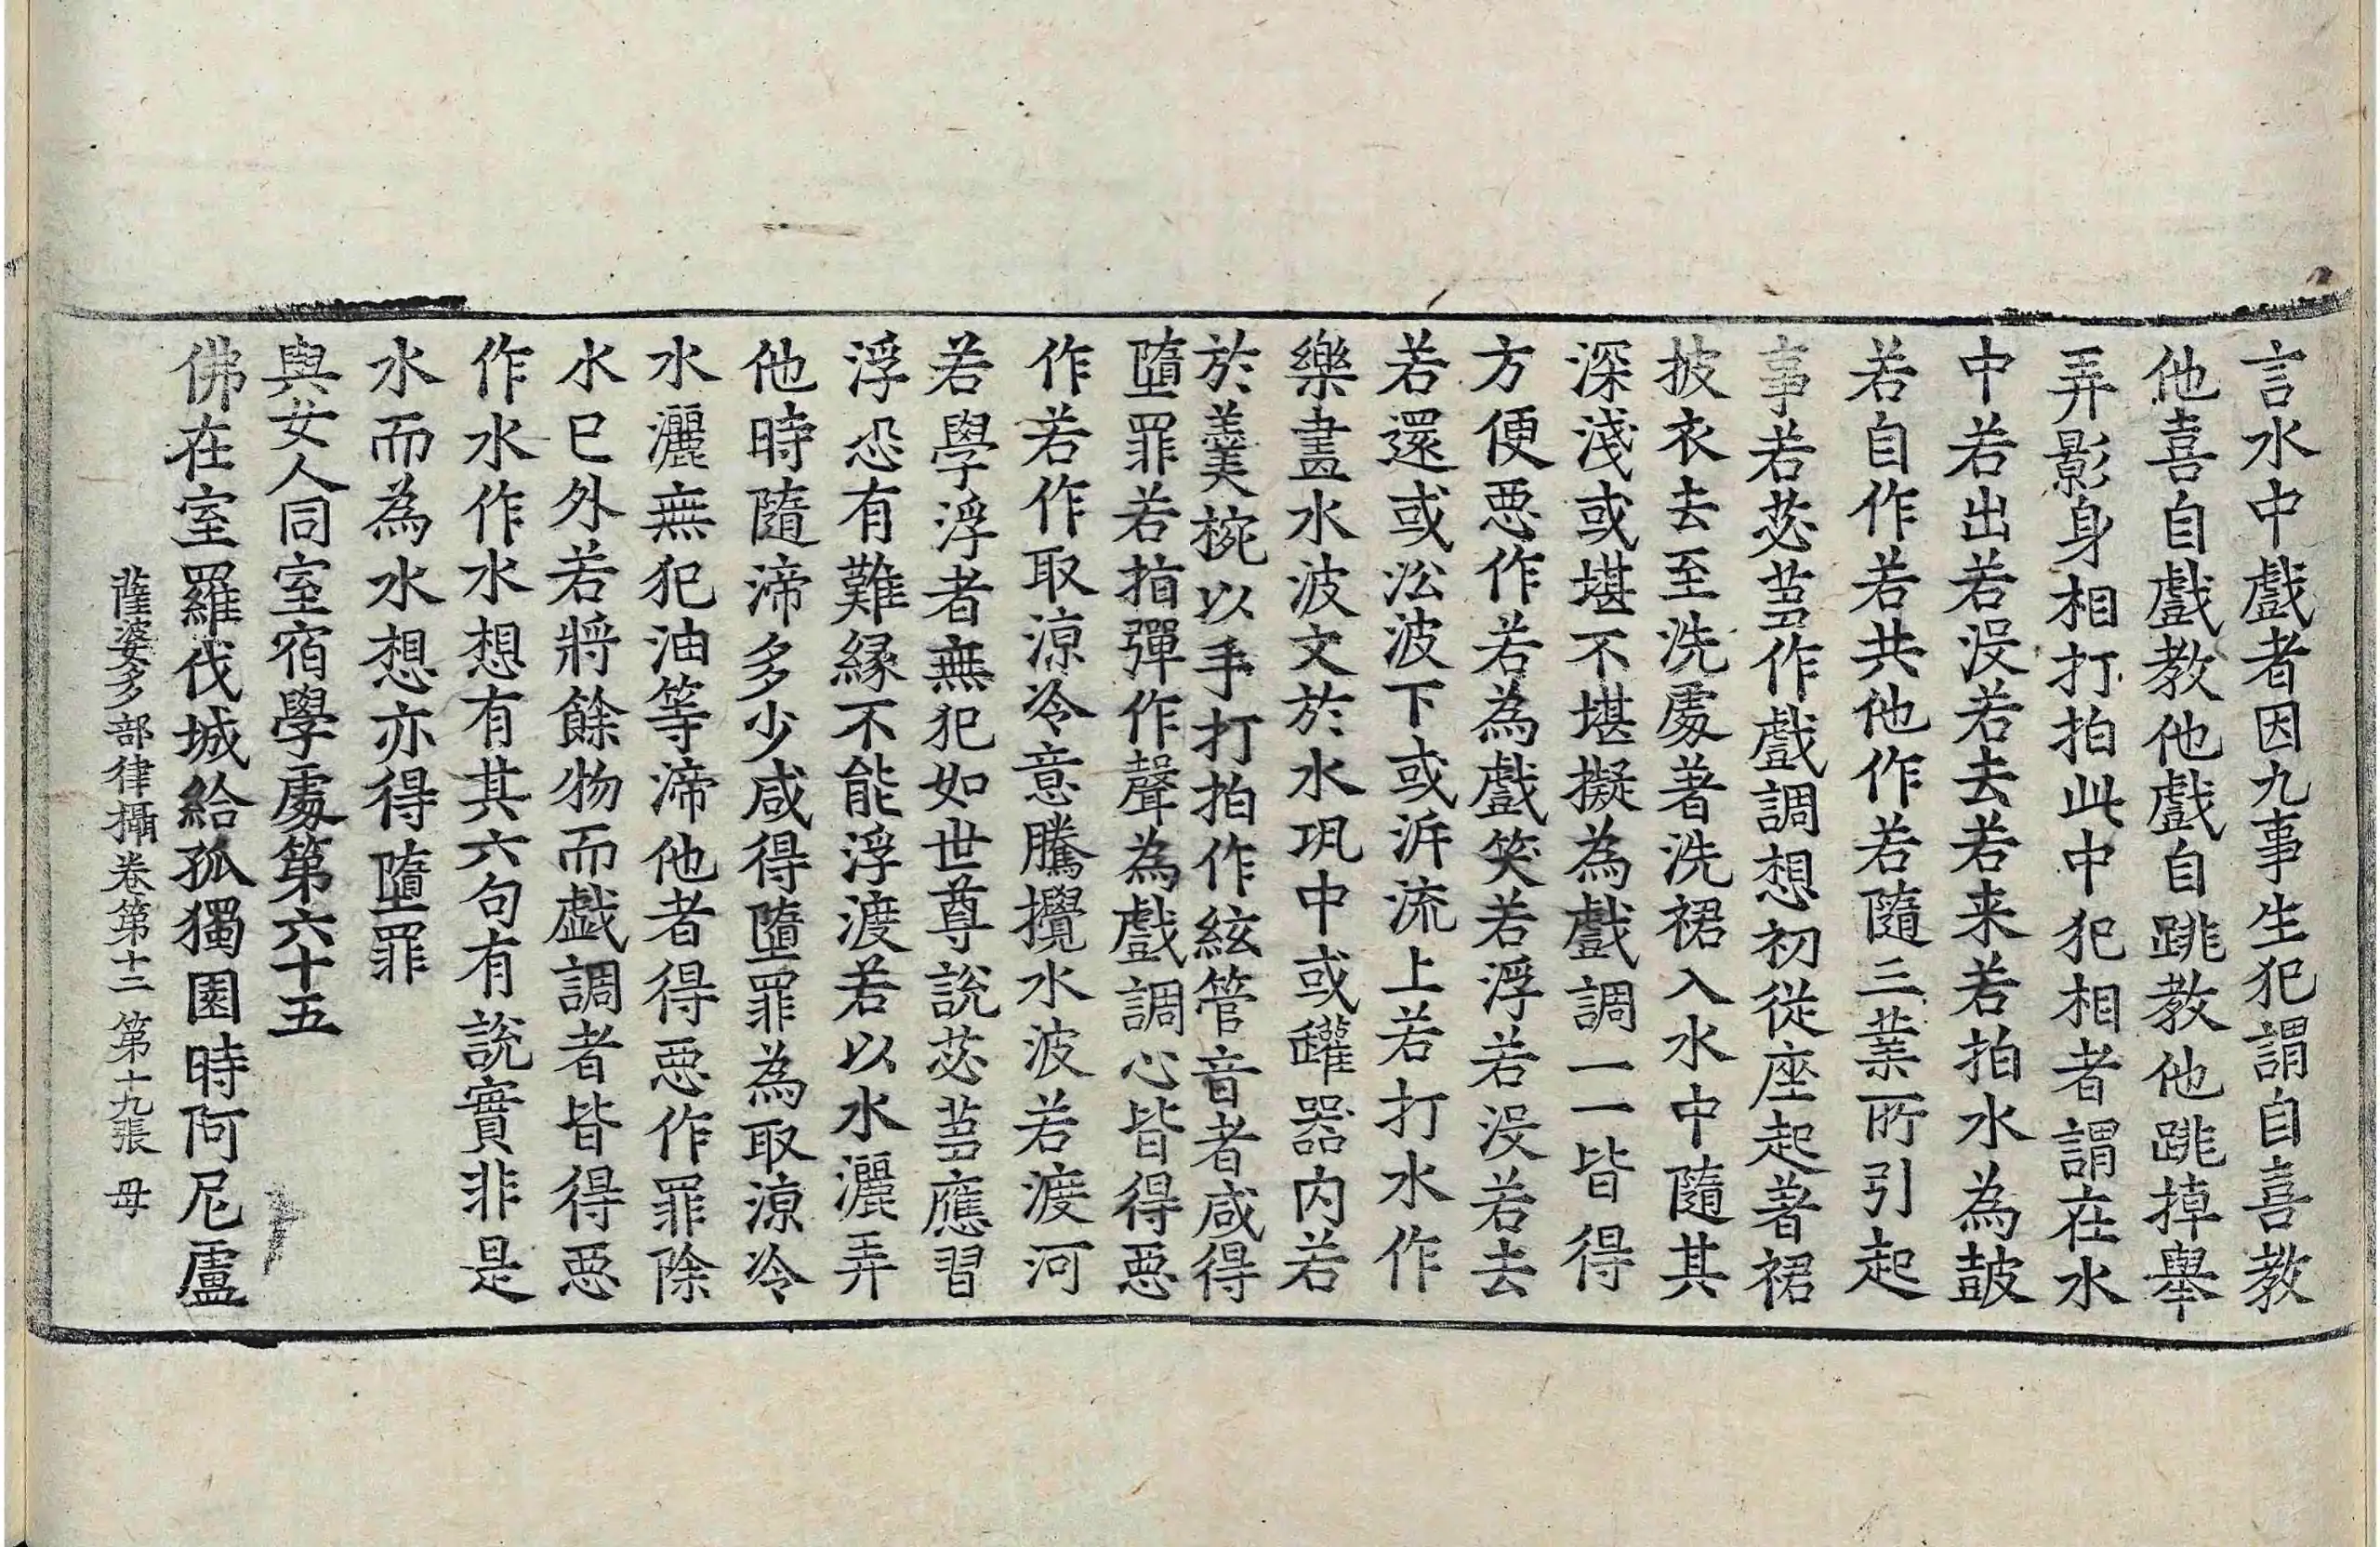 言水中戲者因九事生犯謂自喜教
他喜自戲教他戲自跳教他跳掉舉
弄影身相打拍此中犯相者謂在水
中若出若没若去若来若拍水為皷
若自作若共他作若隨三業所引起
事若苾芻作戲調想初從座起著裙
披衣去至洗處著洗裙入水中隨其
深淺或堪不堪擬為戲調一一皆得
方便惡作若為戲笑若浮若没若去
若還或㳂波下或泝流上若打水作
樂畫水波文於水坑中或罐器内若
於羹椀以手打拍作絃管音者咸得
墮罪若指彈作聲為戲調心皆得惡
作若作取凉冷意騰攪水波若渡河
若學浮者無犯如世尊説苾芻應習
浮恐有難緣不能浮渡若以水灑弄
他時隨渧多少咸得墮罪為取凉冷
水灑無犯油等渧他者得惡作罪除
水已外若將餘物而戲調者皆得惡
作水作水想有其六句有説實非是
水而為水想亦得墮罪
與女人同室宿學處第六十五
佛在室羅伐城給孤獨園時阿尼盧
薩婆多部律攝卷第十二 第十九張 毋